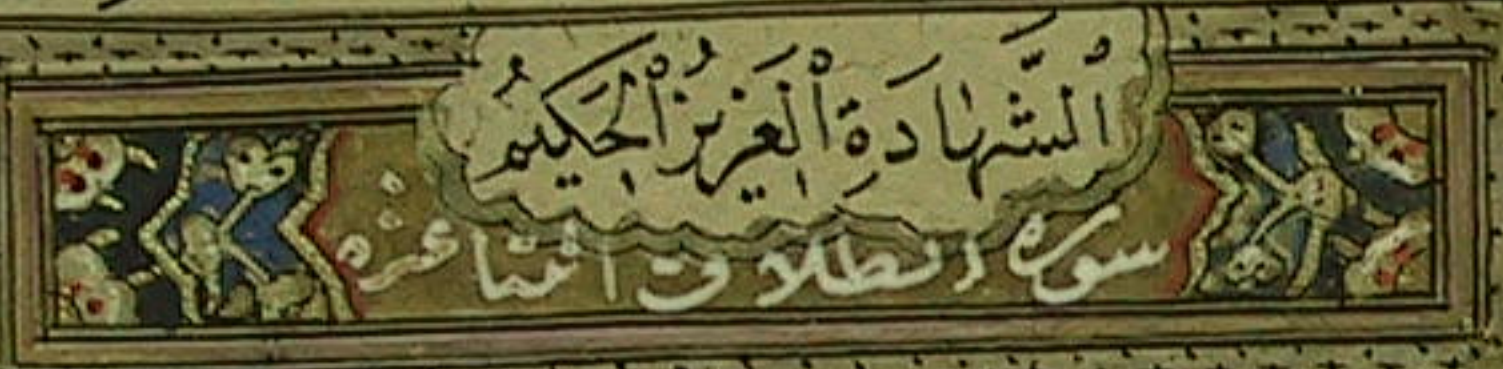 الشَّهَادَةِ الْعَزِيزُ الْحَكِيمُ
سورة الطلاق اثنتا عشرة